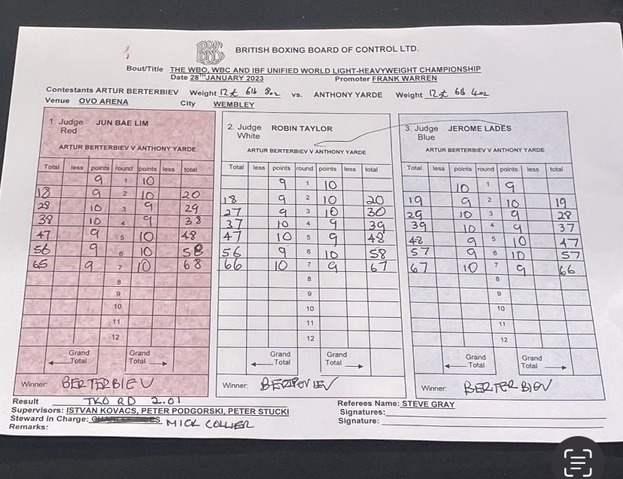 BRITISH BOXING BOARD OF CONTROL LTD.
Bout/Title THE WBO, WBC AND IBF UNIFIED WORLD LIGHT-HEAVYWEIGHT CHAMPIONSHIP
Date 28TH JANUARY 2023 Promoter FRANK WARREN
Contestants ARTUR BERTERBIEV Weight 12st 6lb 8oz vs. ANTHONY YARDE Weight 12st 6lb 4oz
Venue OVO ARENA City WEMBLEY
1. Judge JUN BAE LIM
Red
ARTUR BERTERBIEV V ANTHONY YARDE
Total less points round points less total
9 1 10
18 9 2 10 20
28 10 3 9 29
38 10 4 9 38
47 9 5 10 48
56 9 6 10 58
65 9 7 10 68
8
9
10
11
12
Grand Total Grand Total
Winner: BERTERBIEV
2. Judge ROBIN TAYLOR
White
ARTUR BERTERBIEV V ANTHONY YARDE
Total less points round points less total
9 1 10
18 9 2 10 20
27 9 3 10 30
37 10 4 9 39
47 10 5 9 48
56 9 6 10 58
66 10 7 9 67
8
9
10
11
12
Grand Total Grand Total
Winner:
3. Judge JEROME LADES
Blue
ARTUR BERTERBIEV V ANTHONY YARDE
Total less points round points less total
10 1 9
19 9 2 10 19
29 10 3 9 28
39 10 4 9 37
48 9 5 10 47
57 9 6 10 57
67 10 7 9 66
8
9
10
11
12
Grand Total Grand Total
Winner: BERTERBIEV
Result TKO RD 2.01
Referees Name: STEVE GRAY
Supervisors: ISTVAN KOVACS, PETER PODGORSKI, PETER STUCKI
Signatures:
Steward in Charge: MICK COLLIER
Signature:
Remarks: